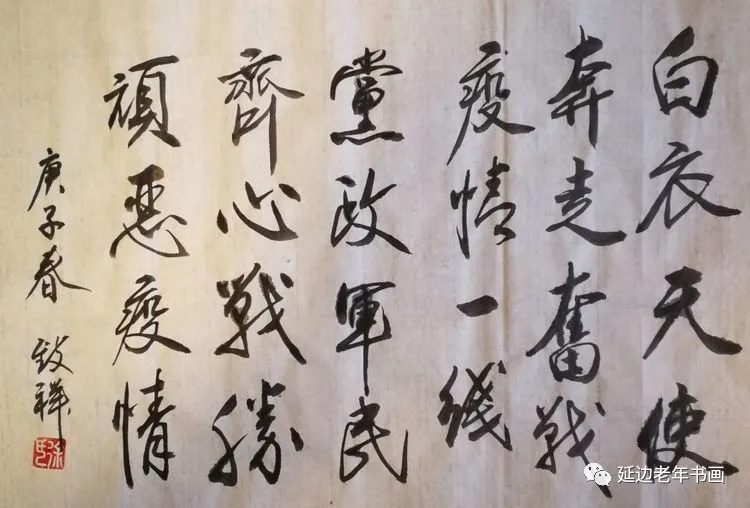 白衣天使
奔走奮戰
疫情一綫
黨政軍民
齊心戰勝
頑惡疫情
庚子春 致祥
延边老年书画